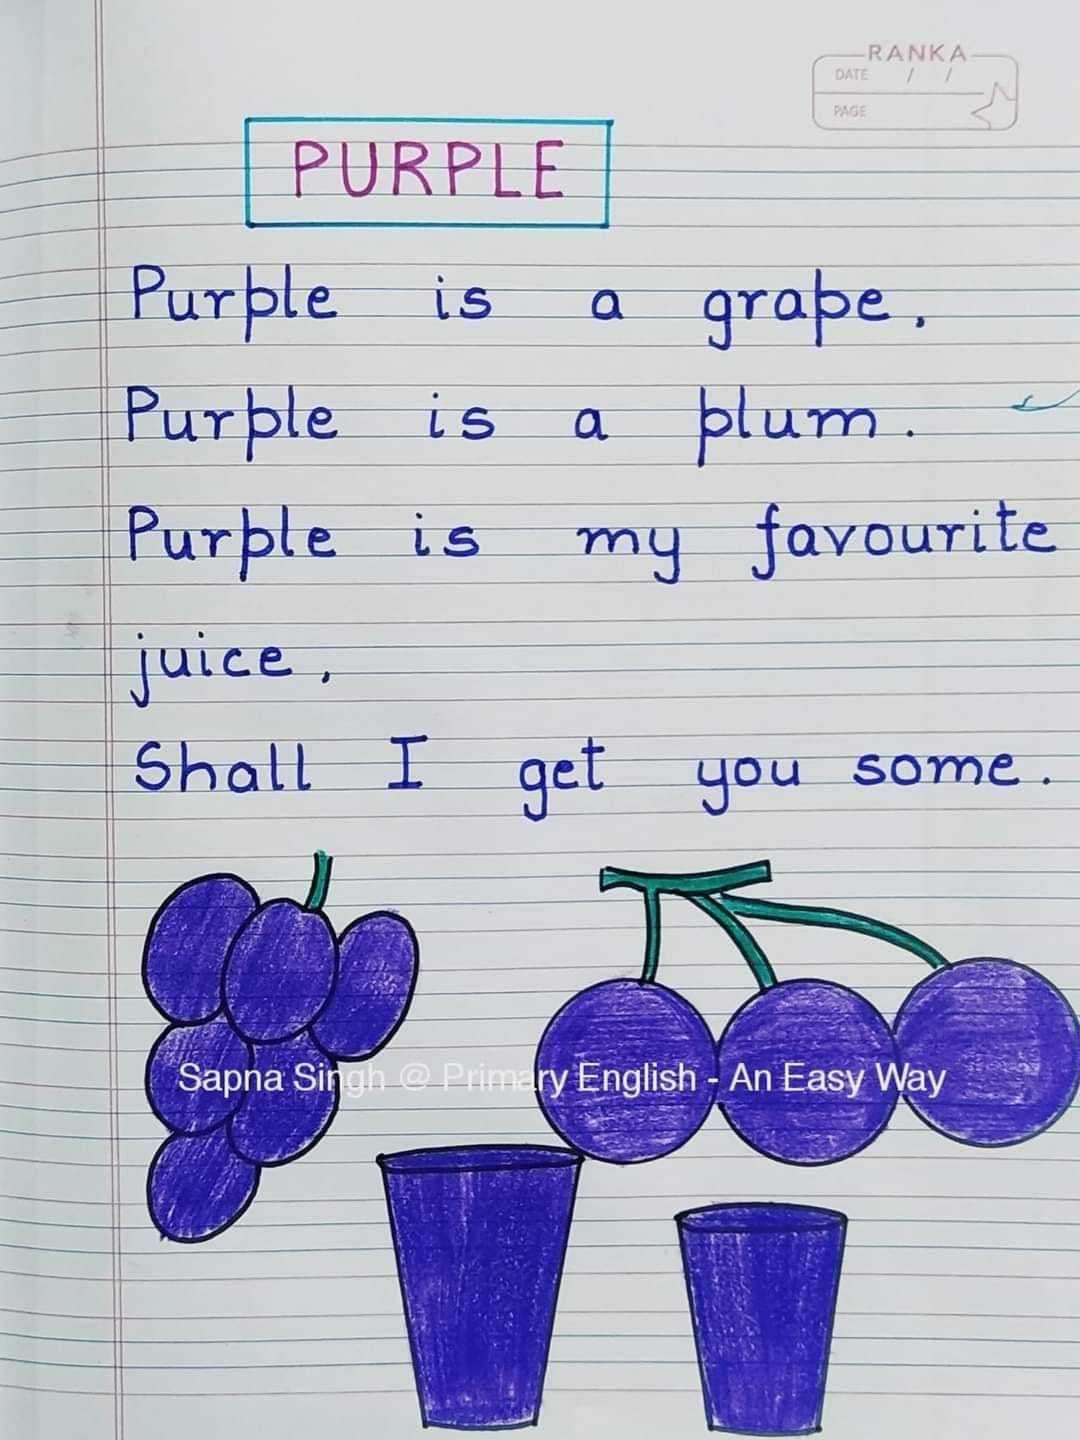 RANKA
DATE / /
PAGE
PURPLE
Purple is a grape,
Purple is a plum.
Purple is my favourite
juice,
Shall I get you some.
Sapna Singh @ Primary English - An Easy Way